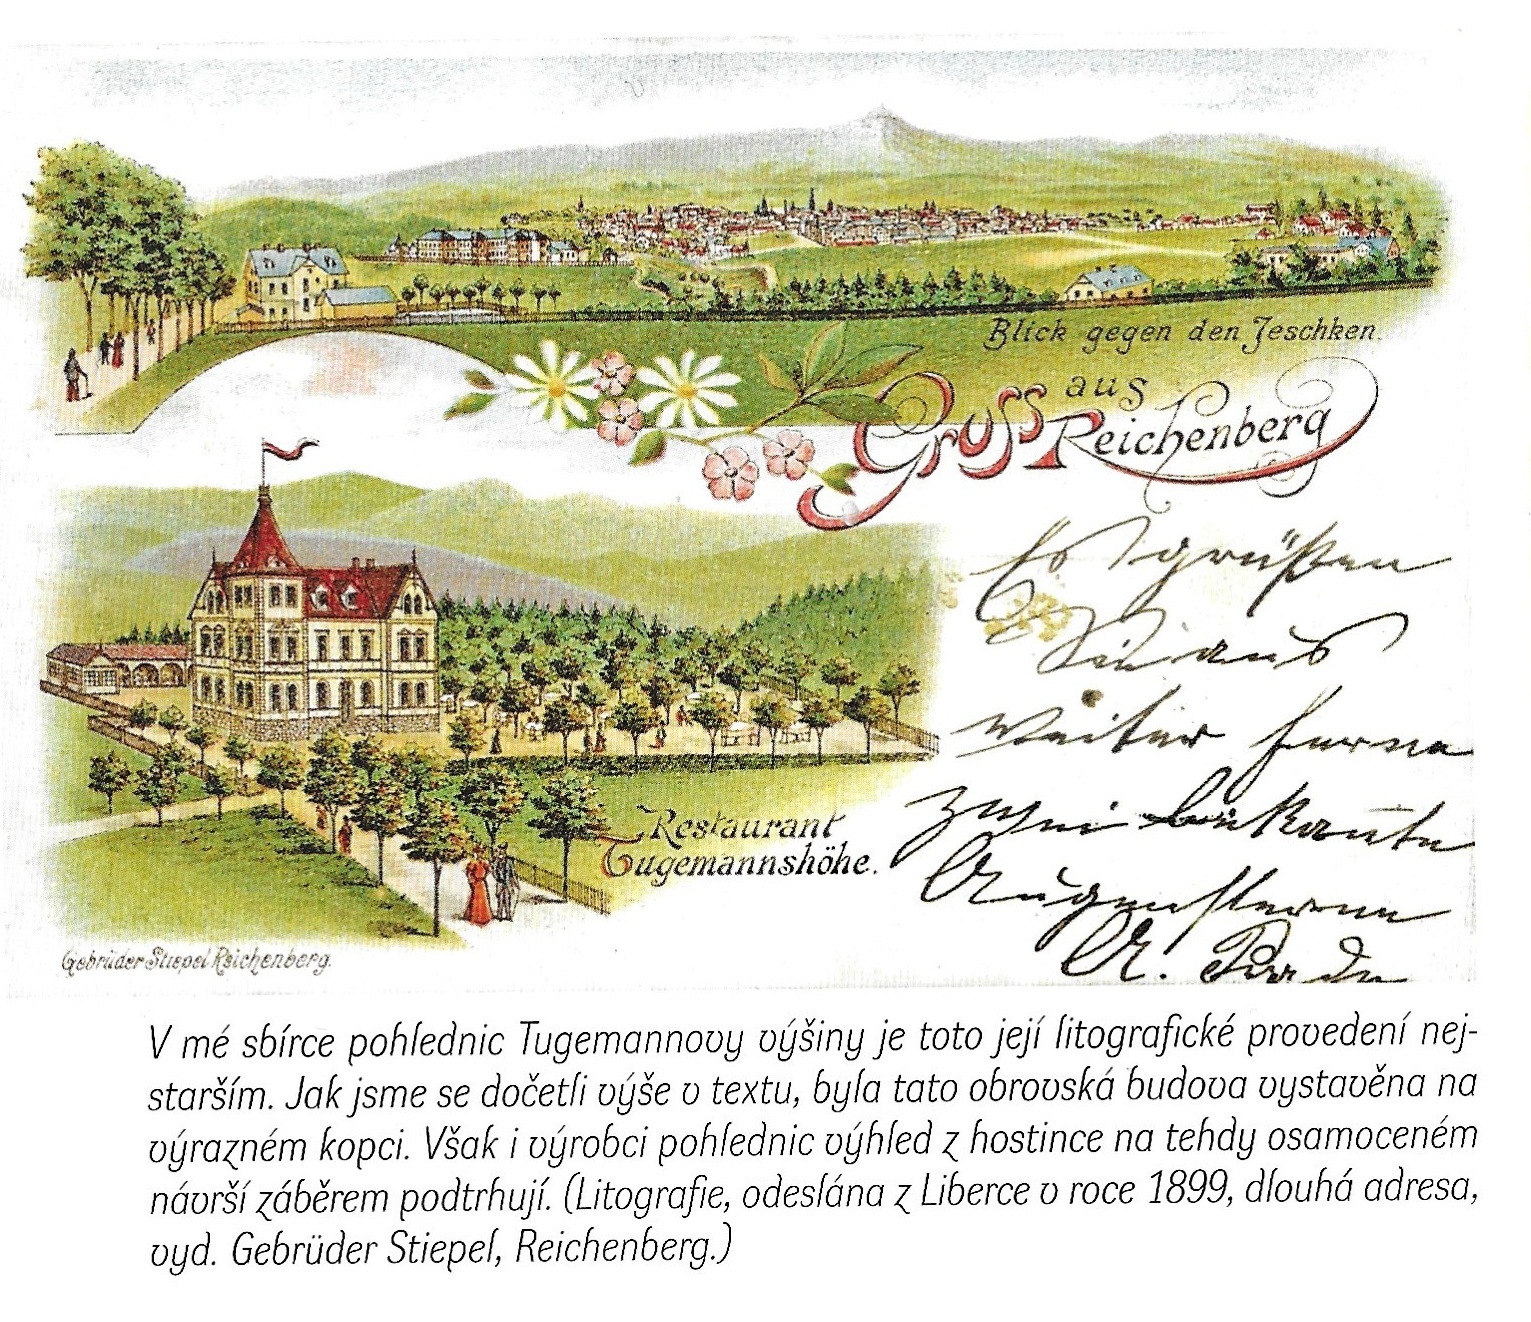 Blick gegen den Jeschken.
Gruss aus Reichenberg
Es grüßen
Sie aus
weiter Ferne
zwei bekannte
Augensterne
A.
Restaurant
Tugemannshöhe.
Gebrüder Stiepel Reichenberg.
V mé sbírce pohlednic Tugemannovy výšiny je toto její litografické provedení nej-
starším. Jak jsme se dočetli výše v textu, byla tato obrovská budova vystavěna na
výrazném kopci. Však i výrobci pohlednic výhled z hostince na tehdy osamoceném
návrší záběrem podtrhují. (Litografie, odeslána z Liberce v roce 1899, dlouhá adresa,
vyd. Gebrüder Stiepel, Reichenberg.)